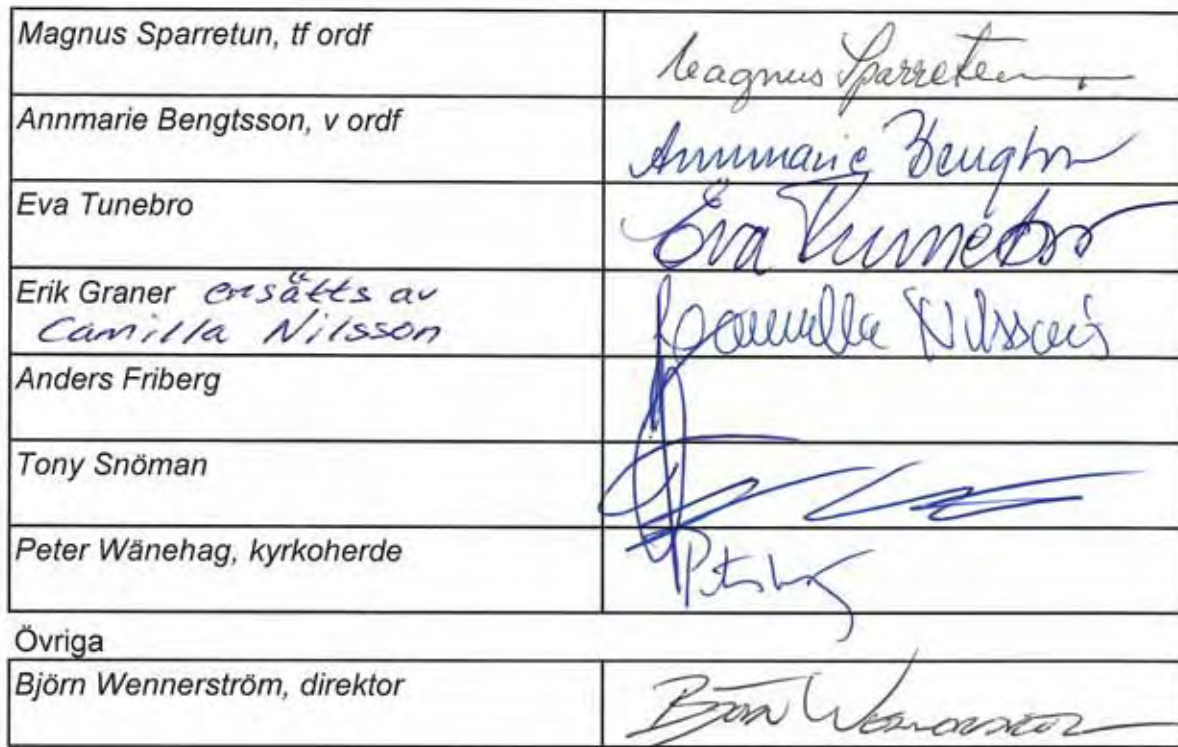 Magnus Sparretun, tf ordf
Magnus Sparretun
Annmarie Bengtsson, v ordf
Annmarie Bengtsson
Eva Tunebro
Eva Tunebro
Erik Graner ersätts av
Camilla Nilsson
Camilla Nilsson
Anders Friberg
Tony Snöman
Peter Wänehag, kyrkoherde
Övriga
Björn Wennerström, direktor
Björn Wennerström